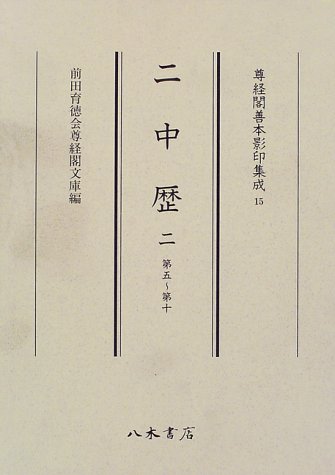 尊経閣善本影印集成 15
二中歴 二
第五～第十
前田育徳会尊経閣文庫編
八木書店